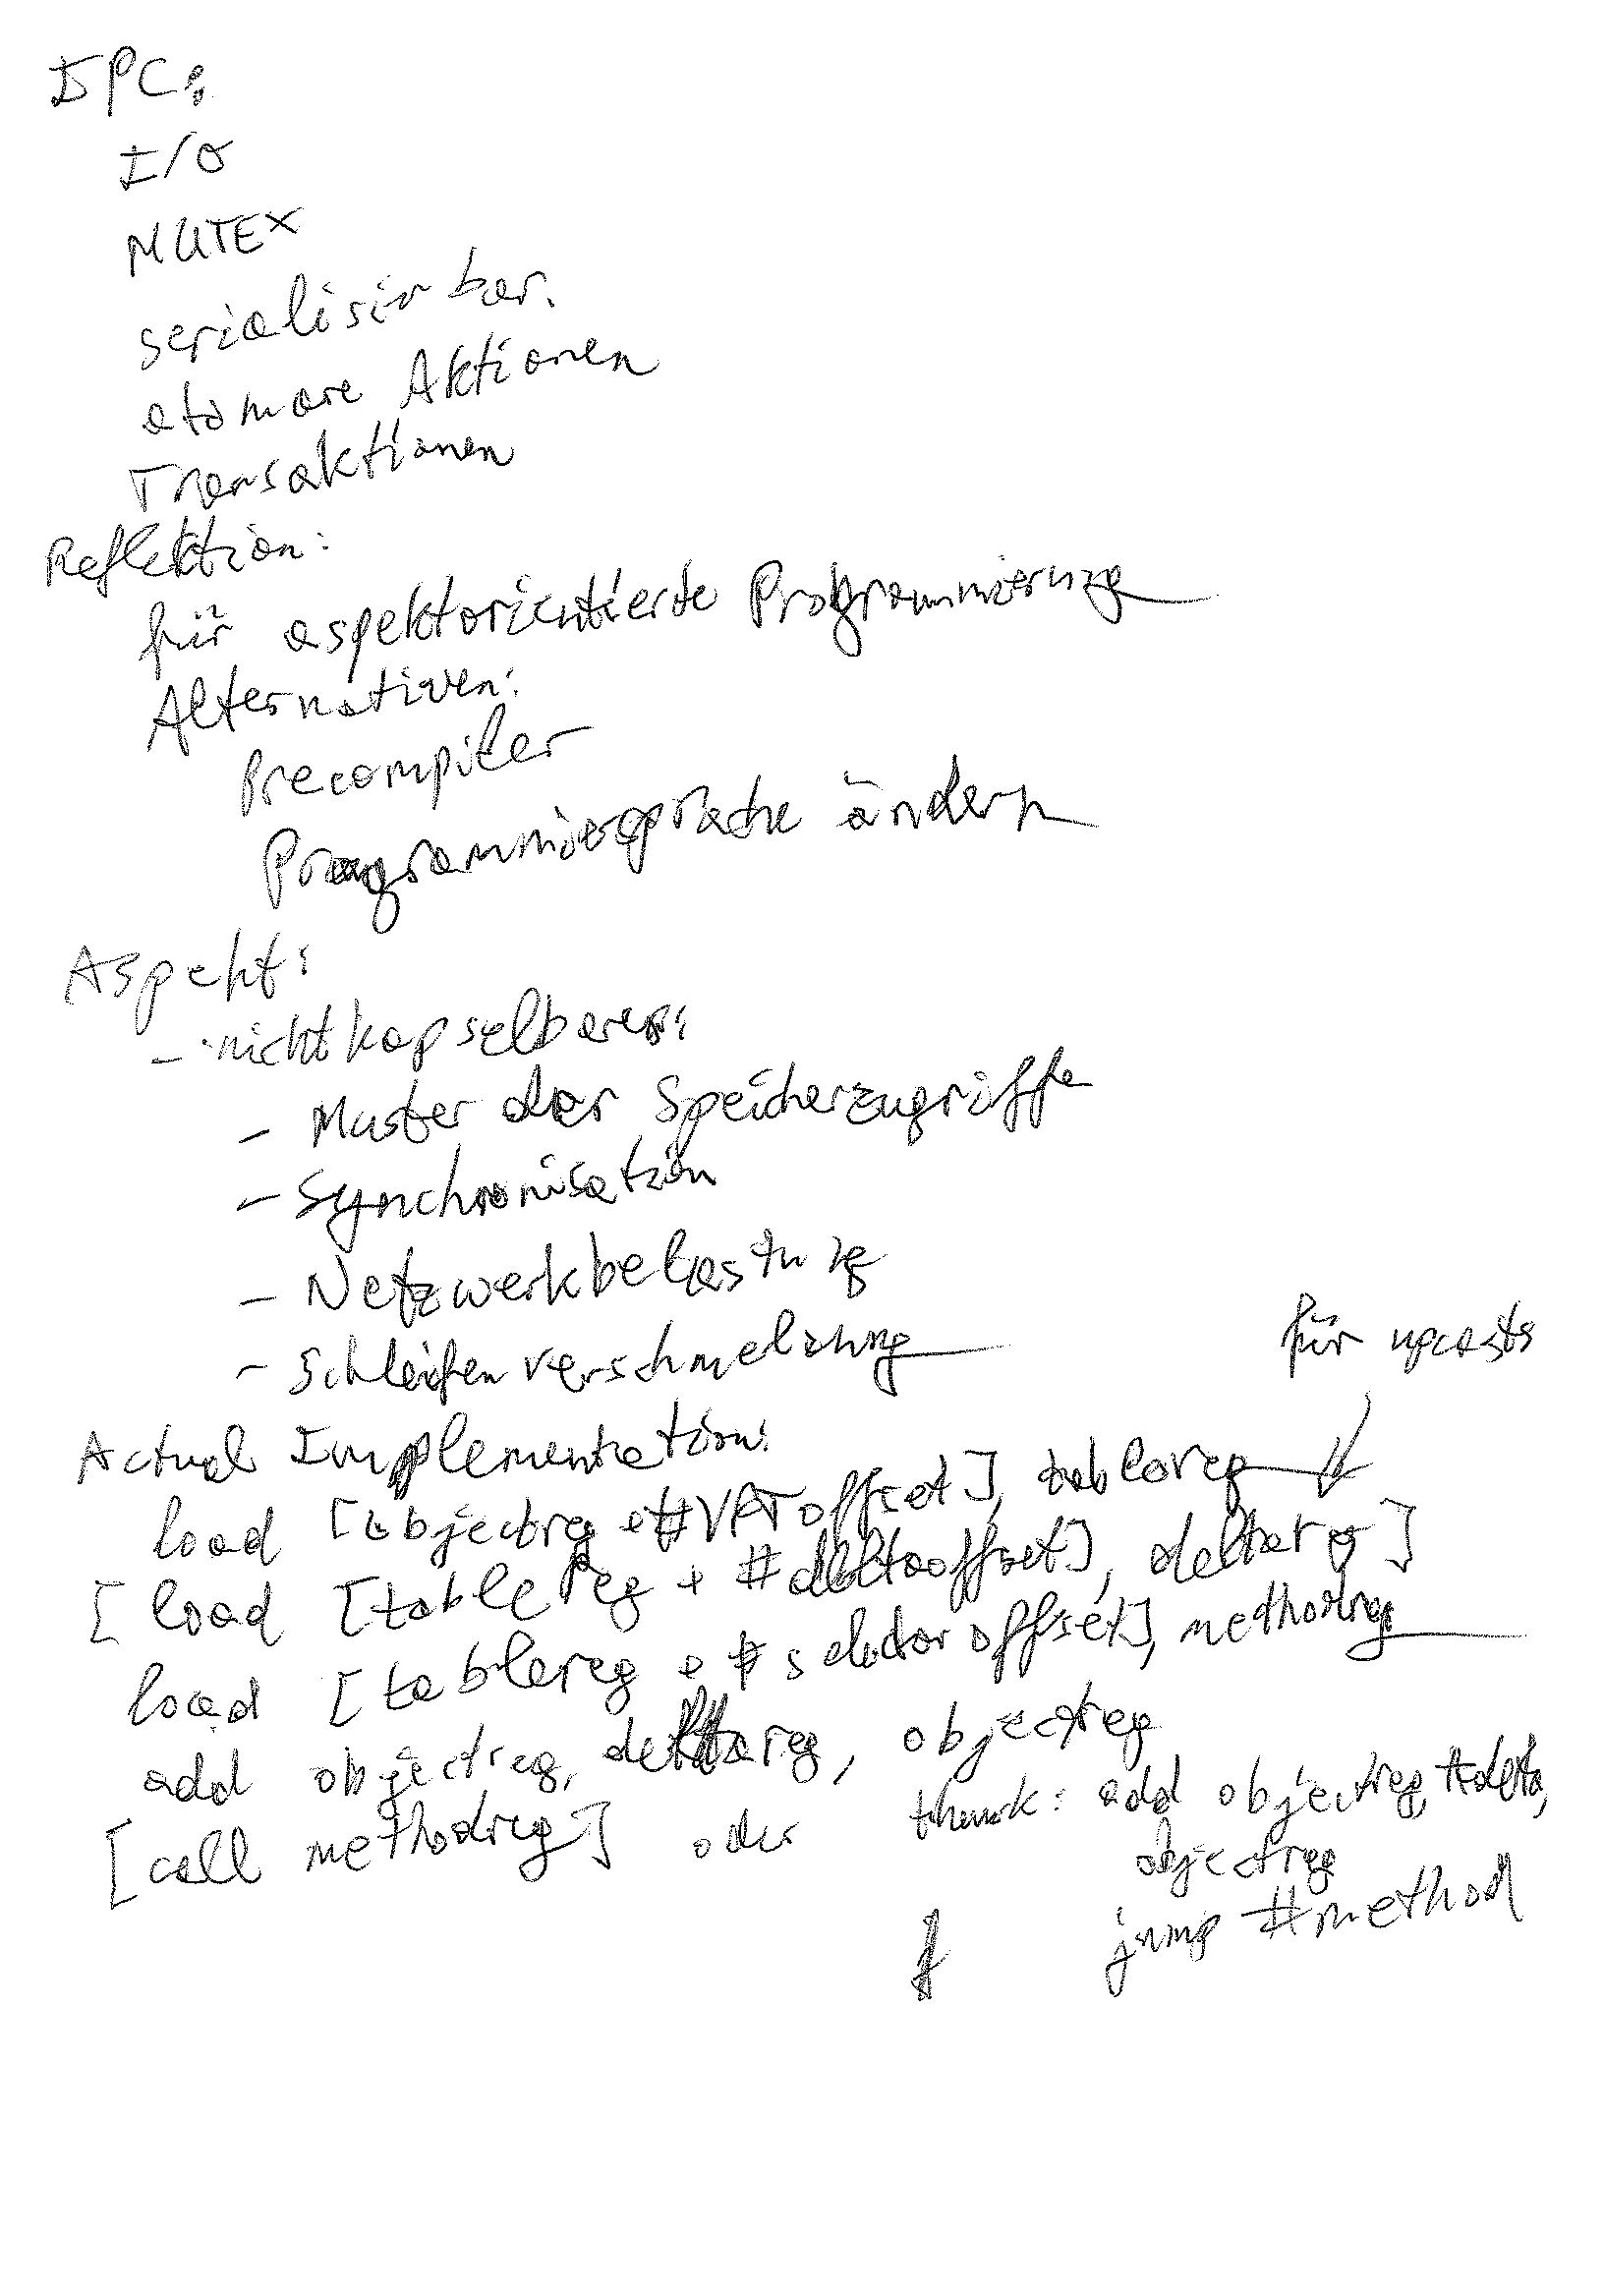 IPC:
I/O
MUTEX
serialisirbar.
atomare Aktionen
Transaktionen
Reflektion:
für aspektorientierte Programmierung
Alternativen:
Precompiler
Programmiersprache ändern
Aspekt:
- nichtkapselbares:
- Muster der Speicherzugriffe
- Synchronisation
- Netzwerkbelastung
- Schleifenverschmelzung
für upcasts
Actual Implementation:
load [objectreg + #VFToffset], tablereg
[load [tablereg + #deltaoffset], deltareg]
load [tablereg + #selectoroffset], methodreg
add objectreg, deltareg, objectreg
[call methodreg] oder
thunk: add objectreg, #delta,
objectreg
jump #method